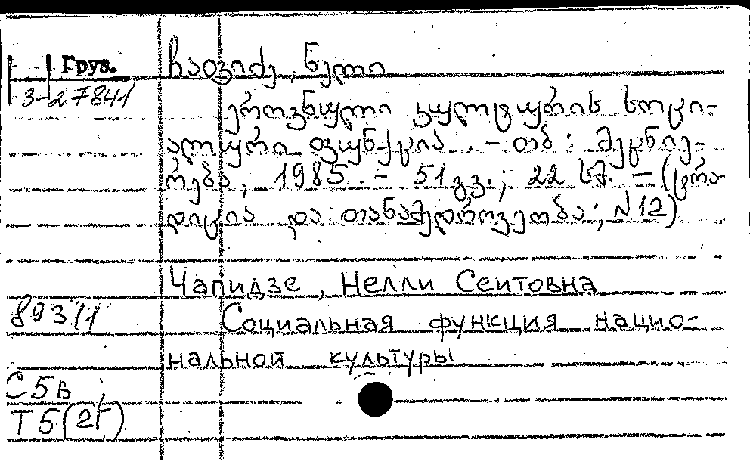 Груз.
3-27841
ჩაფიძე, ნელი
ეროვნული კულტურის სოცი-
ალური ფუნქცია. - თბ: მეცნიე-
რება, 1985. - 51 გვ.; 22 სმ. - (ტრა-
დიცია და თანამედროვეობა; N 12)
Чапидзе, Нелли Сеитовна
893/1
Социальная функция нацио-
нальной культуры
С5в
Т5(2Г)